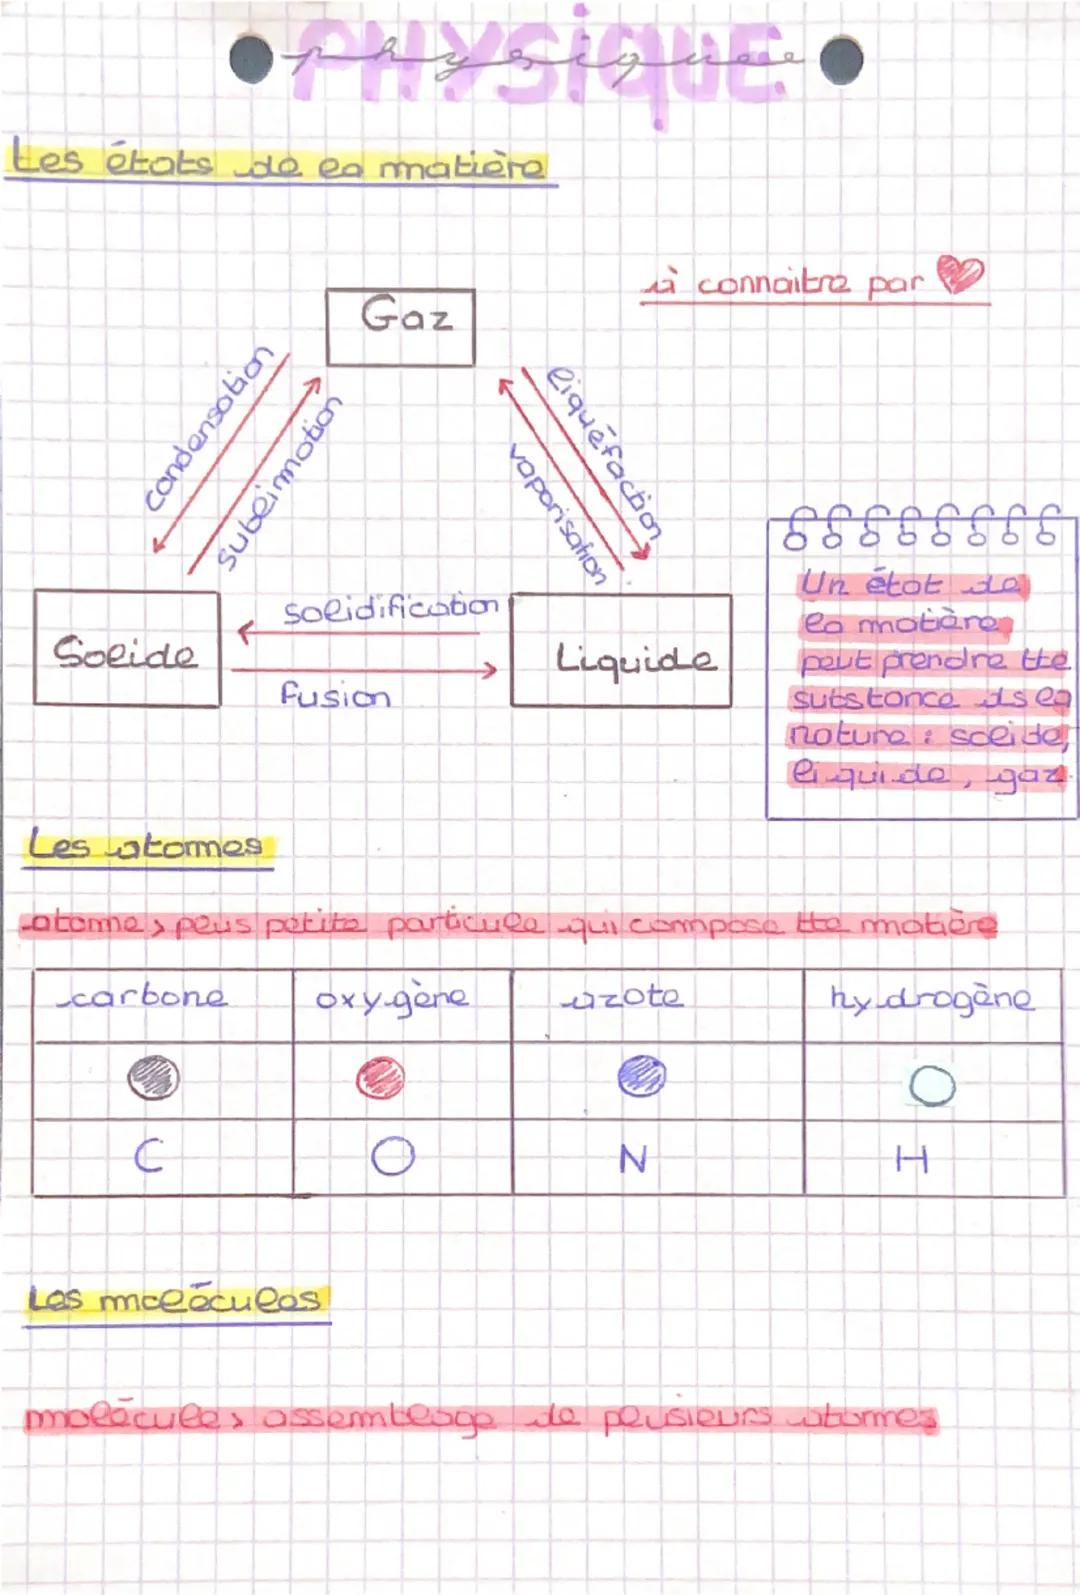 PHYSIQUE
physique
Les états de la matière
à connaitre par
Gaz
condensation
sublimation
liquéfaction
vaporisation
Solide
solidification
fusion
Liquide
Un état de
la matière
peut prendre tte
substance ds la
nature : solide,
liquide, gaz
Les atomes
atome > plus petite particule qui compose tte matière
carbone oxygène azote hydrogène
C O N H
Les molécules
molécule > assemblage de plusieurs atomes